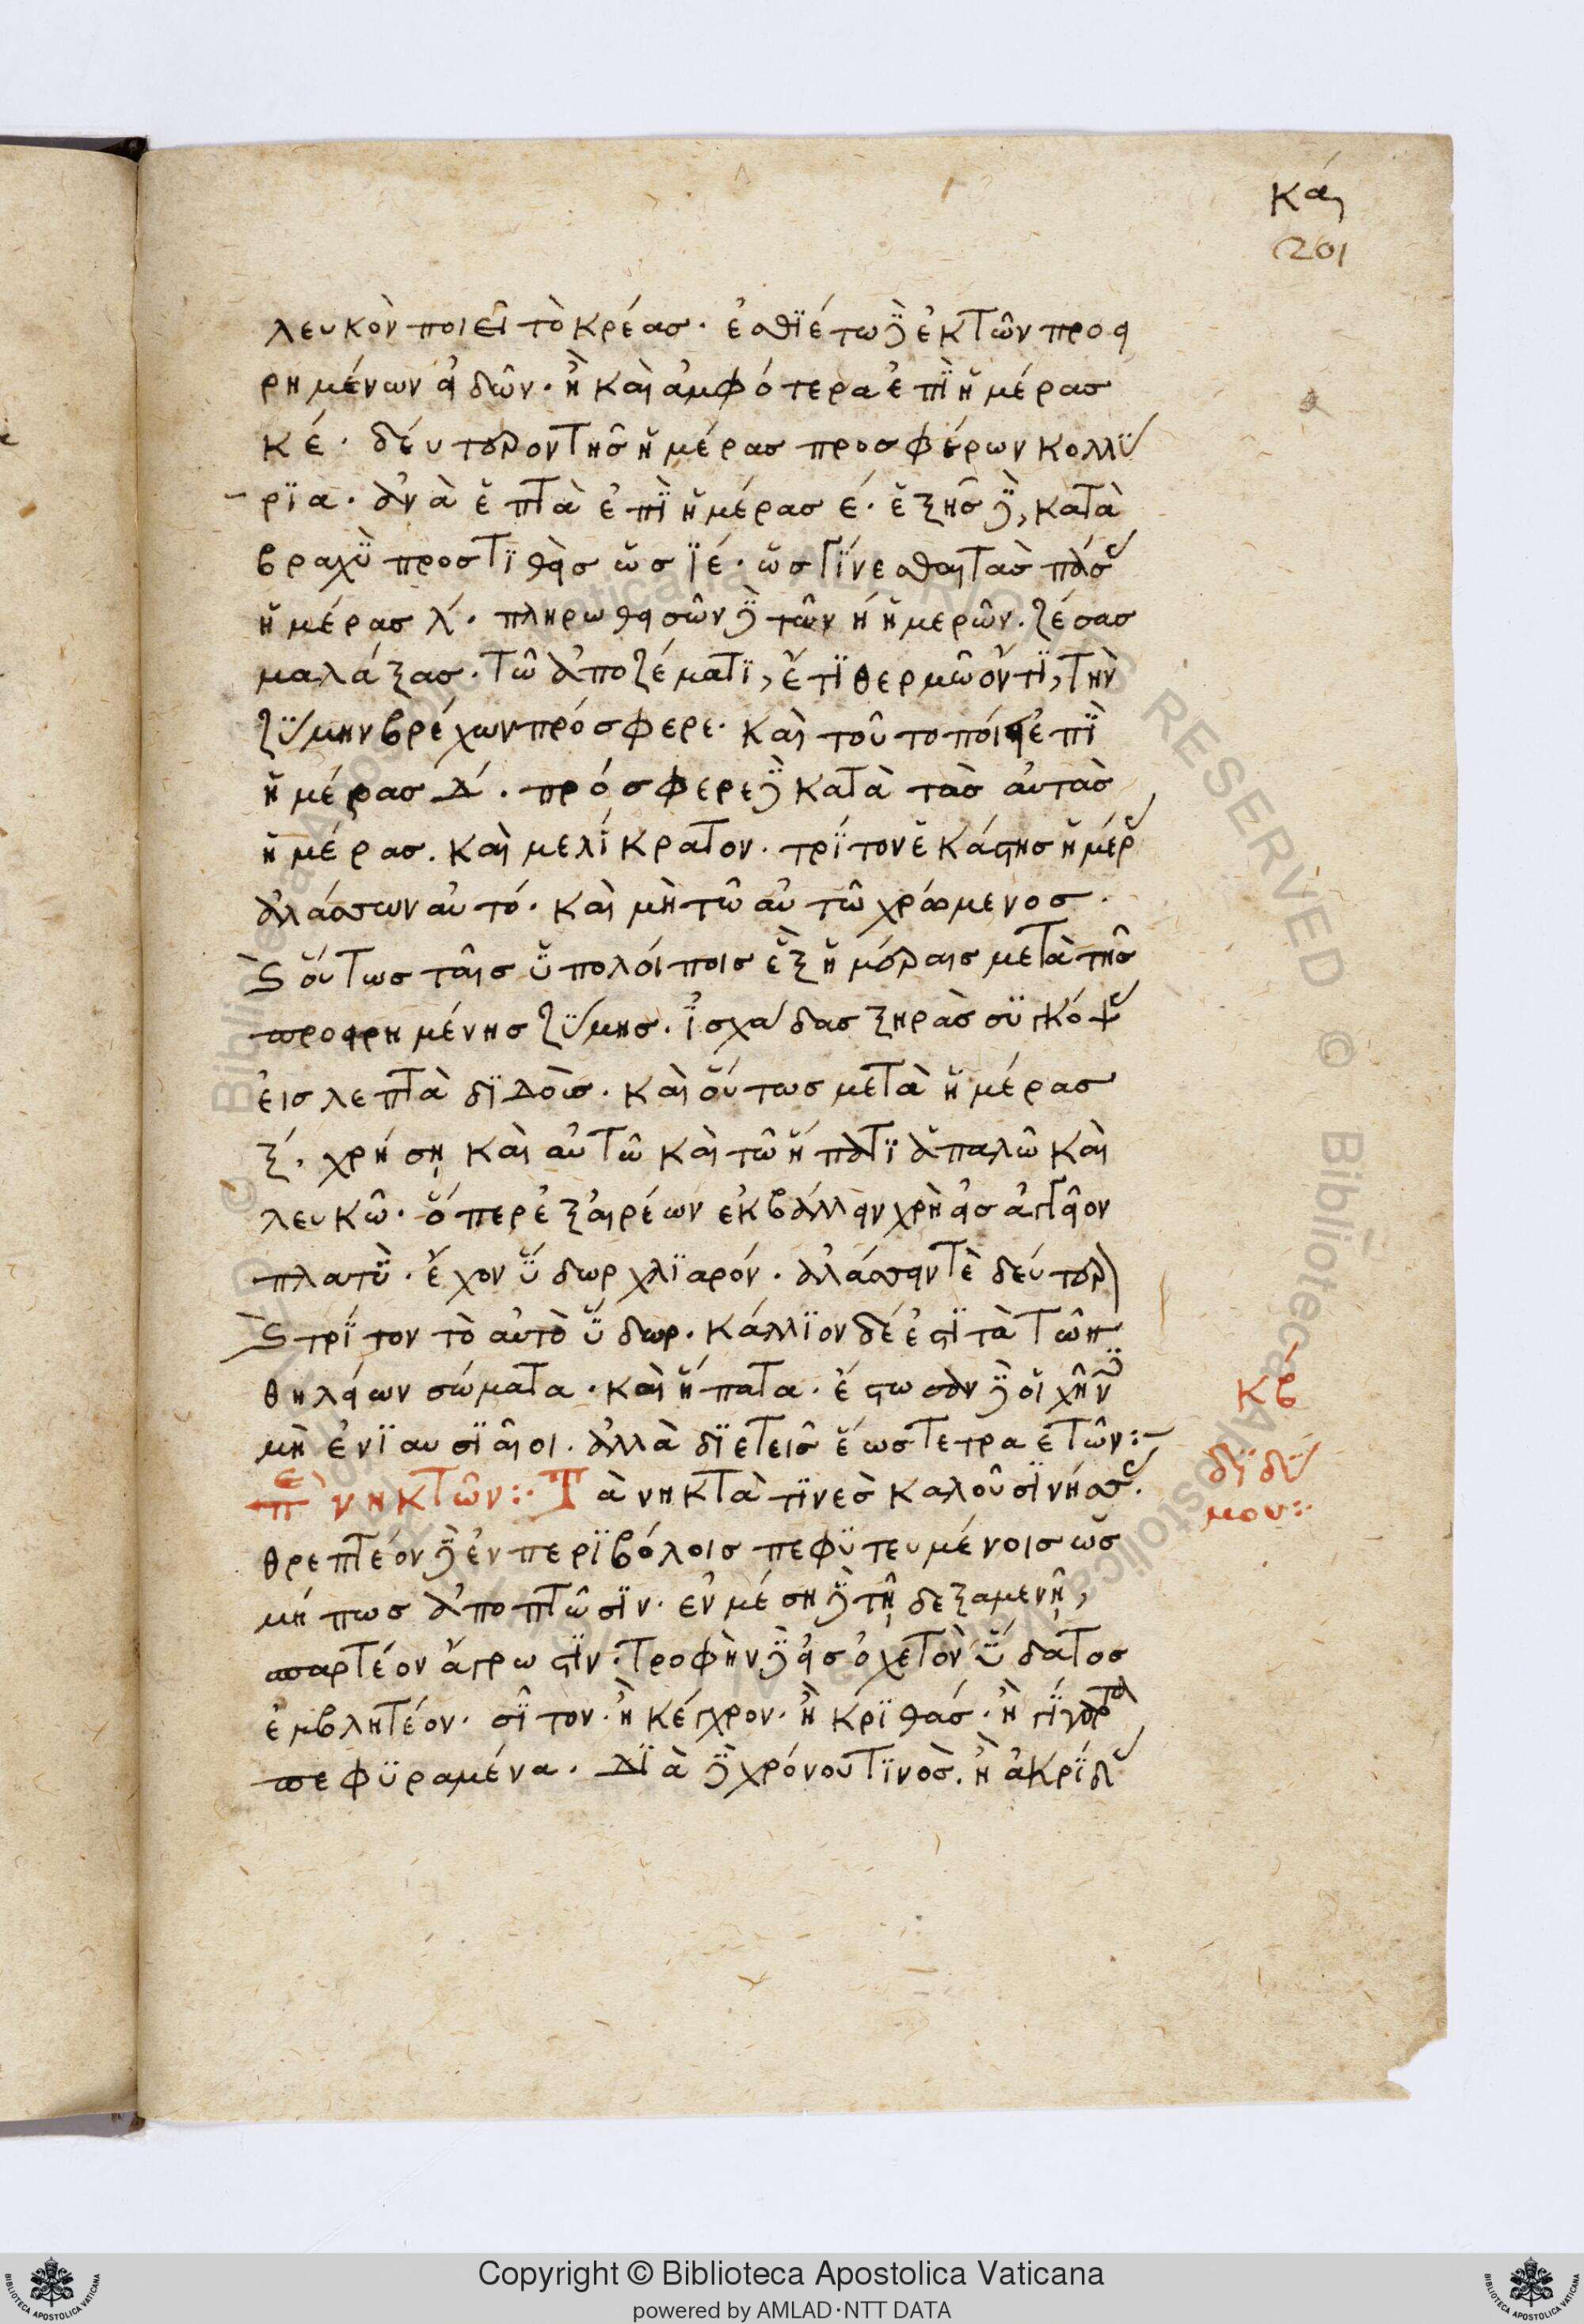 και
201
λευκὸν ποιεῖ τὸ κρέας· ἐσθϊέτω δὲ ἐκ τῶν προει
ρημένων εἰδῶν· ἢ καὶ ἀμφότερα ἐπῒ ἡμέρας
κέ· δεύτερον τῆς ἡμέρας προσφέρων κολλύ
ρϊα· ἀνὰ ἑπτὰ ἐπῒ ἡμέρας έ· ἑξῆς δὲ, κατὰ
βραχὺ προστϊθεὶς ὡς ϊέ· ὡς γΐνεσθαι τὰς πάσας
ἡμέρας λ´· πληρωθεισῶν δὲ τῶν ἡμερῶν· ζέσας
μαλάξας· τῶ ἀποζέματϊ, ἔτϊ θερμῶ ὄντϊ, τὴν
ζύμην βρέχων πρόσφερε· καὶ τοῦτο ποίει ἐπῒ
ἡμέρας Δ´· πρόσφερε δὲ κατὰ τὰς αὐτὰς
ἡμέρας· καὶ μελίκρατον· τρΐτον ἑκάστης ἡμέρας
ἀλάσσων αὐτό· καὶ μὴ τῶ αὐτῶ χρώμενος·
καὶ οὕτως ταῖς ὑπολοίποις ἓξ ἡμέραις μετὰ τῆς
προειρημένης ζύμης· ἰσχάδας ξηρὰς συγκόψας
εἰς λεπτὰ δϊδοὺς· καὶ οὕτως μετὰ ἡμέρας
ξ´· χρήση καὶ αὐτῶ καὶ τῶ ἥπατϊ ἁπαλῶ καὶ
λευκῶ· ὅπερ ἐξαιρέων ἐκβάλλειν χρὴ εἰς ἀγγεῖον
πλατὺ· ἔχον ὕδωρ χλϊαρόν· ἀλάσσειν τὲ δεύτερον
καὶ τρΐτον τὸ αὐτὸ ὕδωρ· κάλλϊον δέ ἐστϊ τὰ τῶν
θηλείων σώματα· καὶ ἥπατα· ἔστωσαν δὲ οἱ χῆνες
μὴ ἐνϊαυσϊαῖοι· ἀλλὰ δϊετεῖς ἕως τετραετῶν:-
πὲ νηκτῶν:· Τὰ νηκτὰ τϊνὲς καλοῦσϊ νήσσας·
θρεπτέον δὲ ἐν περϊβόλοις πεφϋτευμένοις ὡς
μή πως ἀποπτῶσϊν· ἐν μέση δὲ τῆ δεξαμενῆ,
σπαρτέον ἄγρωστϊν· τροφὴν δὲ εἰς ὀχετὸν ὕδατος
ἐμβλητέον· σῖτον· ἢ κέγχρον· ἢ κρϊθάς· ἢ γΐγαρτα
πεφϋραμένα· Δϊὰ δὲ χρόνου τϊνὸς· ἢ ἀκρΐδας
κβ
δϊδύ
μου:·